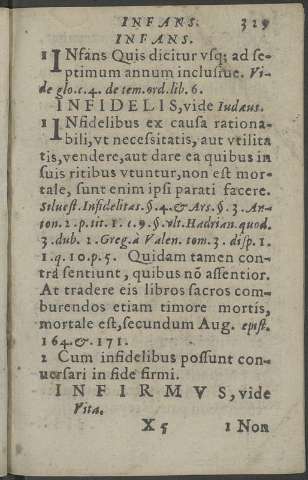 INFANS. 329
INFANS.
1 INfans Quis dicitur vsq; ad se-
ptimum annum inclusiue. Vi-
de glo. c. 4. de tem. ord. lib. 6.
INFIDELIS, vide Iudæus.
1 INfidelibus ex causa rationa-
bili, vt necessitatis, aut vtilita
tis, vendere, aut dare ea quibus in
suis ritibus vtuntur, non est mor-
tale, sunt enim ipsi parati facere.
Siluest. Infidelitas. §. 4. & Ars. §. 3. An-
ton. 2. p. tit. 1. c. 9. §. vlt. Hadrian. quod.
3. dub. 1. Greg. à Valen. tom. 3. disp. 1.
1. q. 10. p. 5. Quidam tamen con-
tra sentiunt, quibus nõ assentior.
At tradere eis libros sacros com-
burendos etiam timore mortis,
mortale est, secundum Aug. epist.
164. & 171.
2 Cum infidelibus possunt con-
uersari in fide firmi.
INFIRMVS, vide
Vita.
X 5 1 Non